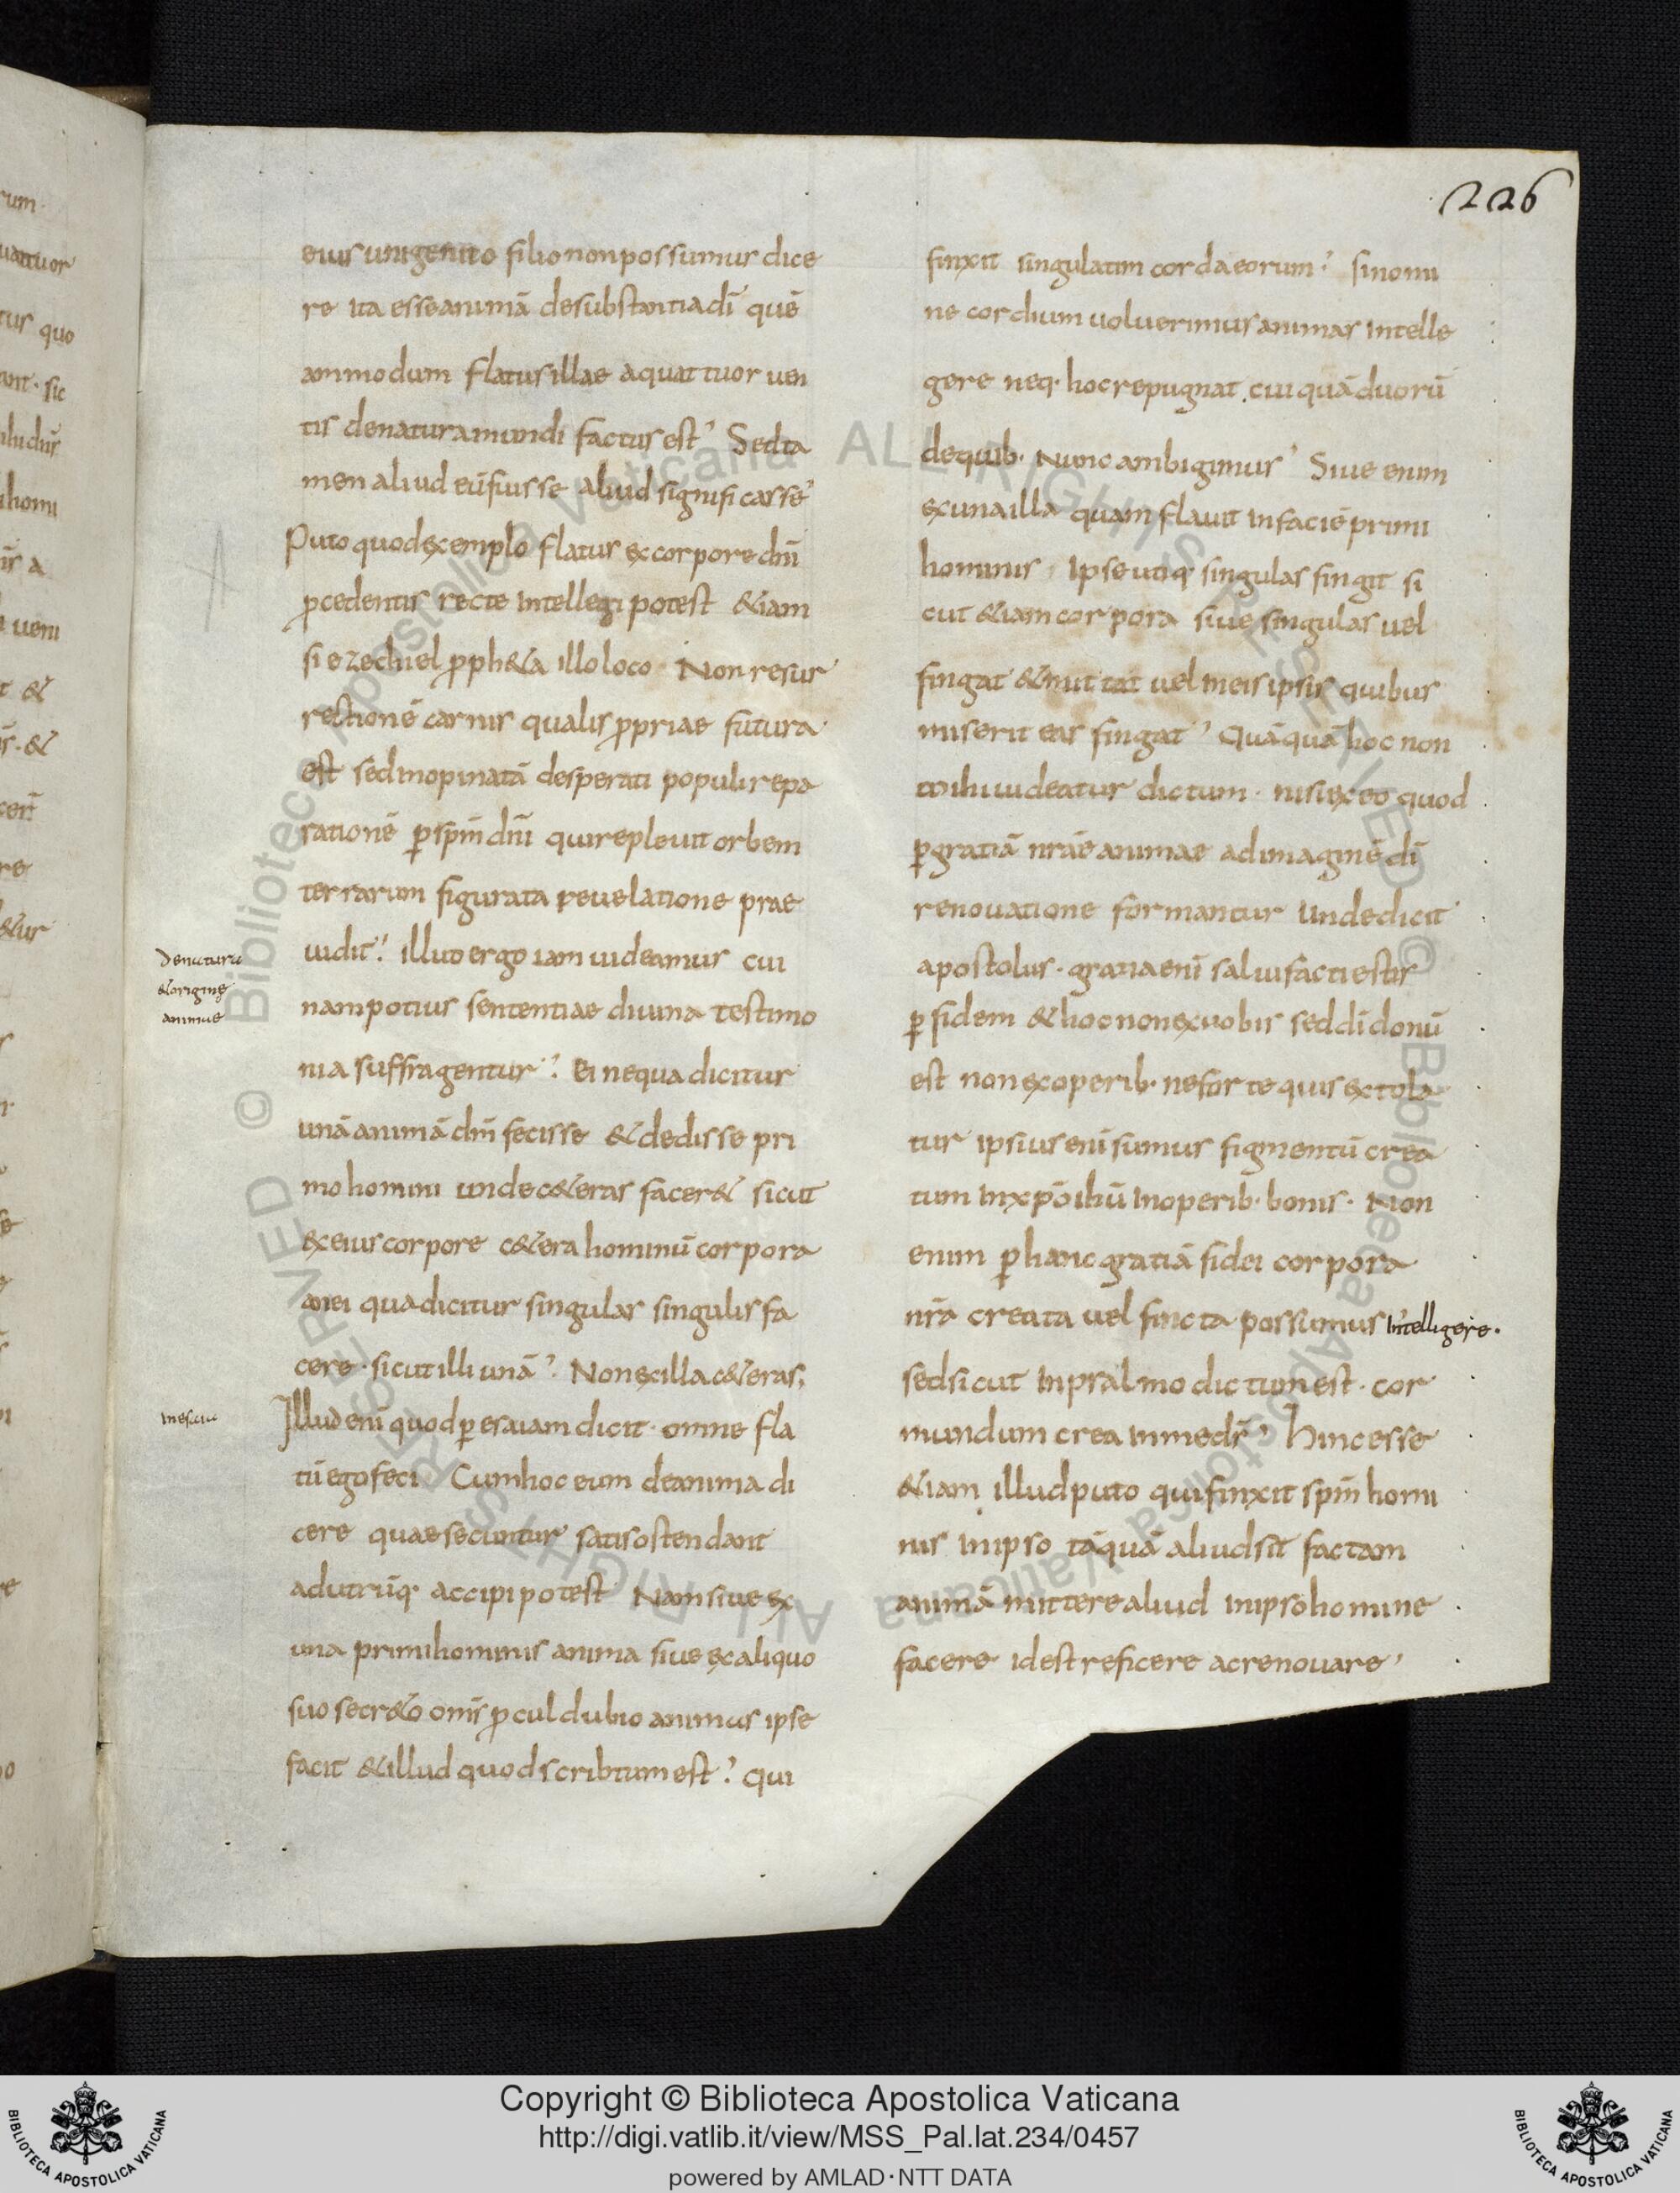 226
eius unigenito filio non possumus dice
re ita esse animā de substantia dī quē
ammodum flatus illae a quattuor uen
tis de natura mundi factus est? Sed ta
men aliud eū fuisse aliud significasse?
Puto quod exemplo flatus ex corpore dn̄i
p̄cedentis recte intellegi potest &iam
si ezechiel p̄ph&a illo loco · Non resur
rectionē carnis qualis p̄priae futura
est sed inopinatā desperati populi repa
rationē p̄ spm̄ dn̄i qui repleuit orbem
terrarum figurata reuelatione prae
uidit? illut ergo iam uideamus cui
De natura
& origine
animae
nam potius sententiae diuina testimo
nia suffragentur? Ei ne qua dicitur
unā animā dm̄ fecisse & dedisse pri
mo homini unde c&eras facer& sicut
ex eius corpore c&era hominū corpora
an ei qua dicitur singulas singulis fa
cere · sicut illi unā? Non ex illa c&eras;
Illud enī quod p̄ esaiam dicit · omne fla
tū ego feci · Cum hoc eum de anima di
cere quae secuntur satis ostendant
ad utrūq· accipi potest Nam siue ex
una primi hominis anima siue ex aliquo
suo secr&o om̄s p̄cul dubio animas ipse
facit & illud quod scribtum est? Qui
finxit singulatim corda eorum? si nomi
ne cordium uoluerimus animas intelle
gere neq· hoc repugnat cuiquā duorū
de quib· Nunc ambigimus? Siue enim
ex una illa quam flauit in faciē primi
hominis · Ipse utiq· singulas fingit si
cut &iam corpora siue singulas uel
fingat & mittat uel in eis ipsis quibus
miserit eas fingat? Quāquā hoc non
mihi uideatur dictum · nisi ex eo quod
p̄ gratiā nr̄ae animae ad imaginē dī
renouatione formantur Unde dicit
apostolus · gratia enī salui facti estis
p̄ fidem & hoc non ex uobis sed dī donū
est non ex operib· ne forte quis extola
tur ipsius enī sumus figmentū crea
tum in xp̄o ihū in operib· bonis · Non
enim p̄ hanc gratiā fidei corpora
nr̄a creata uel fincta possumus intelligere.
sed sicut in psalmo dictum est · cor
mundum crea in me ds̄? Hinc esse
&iam illud puto qui finxit spm̄ homi
nis in ipso tāquā aliud sit factam
animā mittere aliud in ipso homine
facere id est reficere ac renouare?
Copyright © Biblioteca Apostolica Vaticana
http://digi.vatlib.it/view/MSS_Pal.lat.234/0457
powered by AMLAD · NTT DATA
BIBLIOTECA APOSTOLICA VATICANA
BIBLIOTECA APOSTOLICA VATICANA
© Biblioteca Apostolica Vaticana ALL RIGHTS RESERVED
© Biblioteca Apostolica Vaticana ALL RIGHTS RESERVED